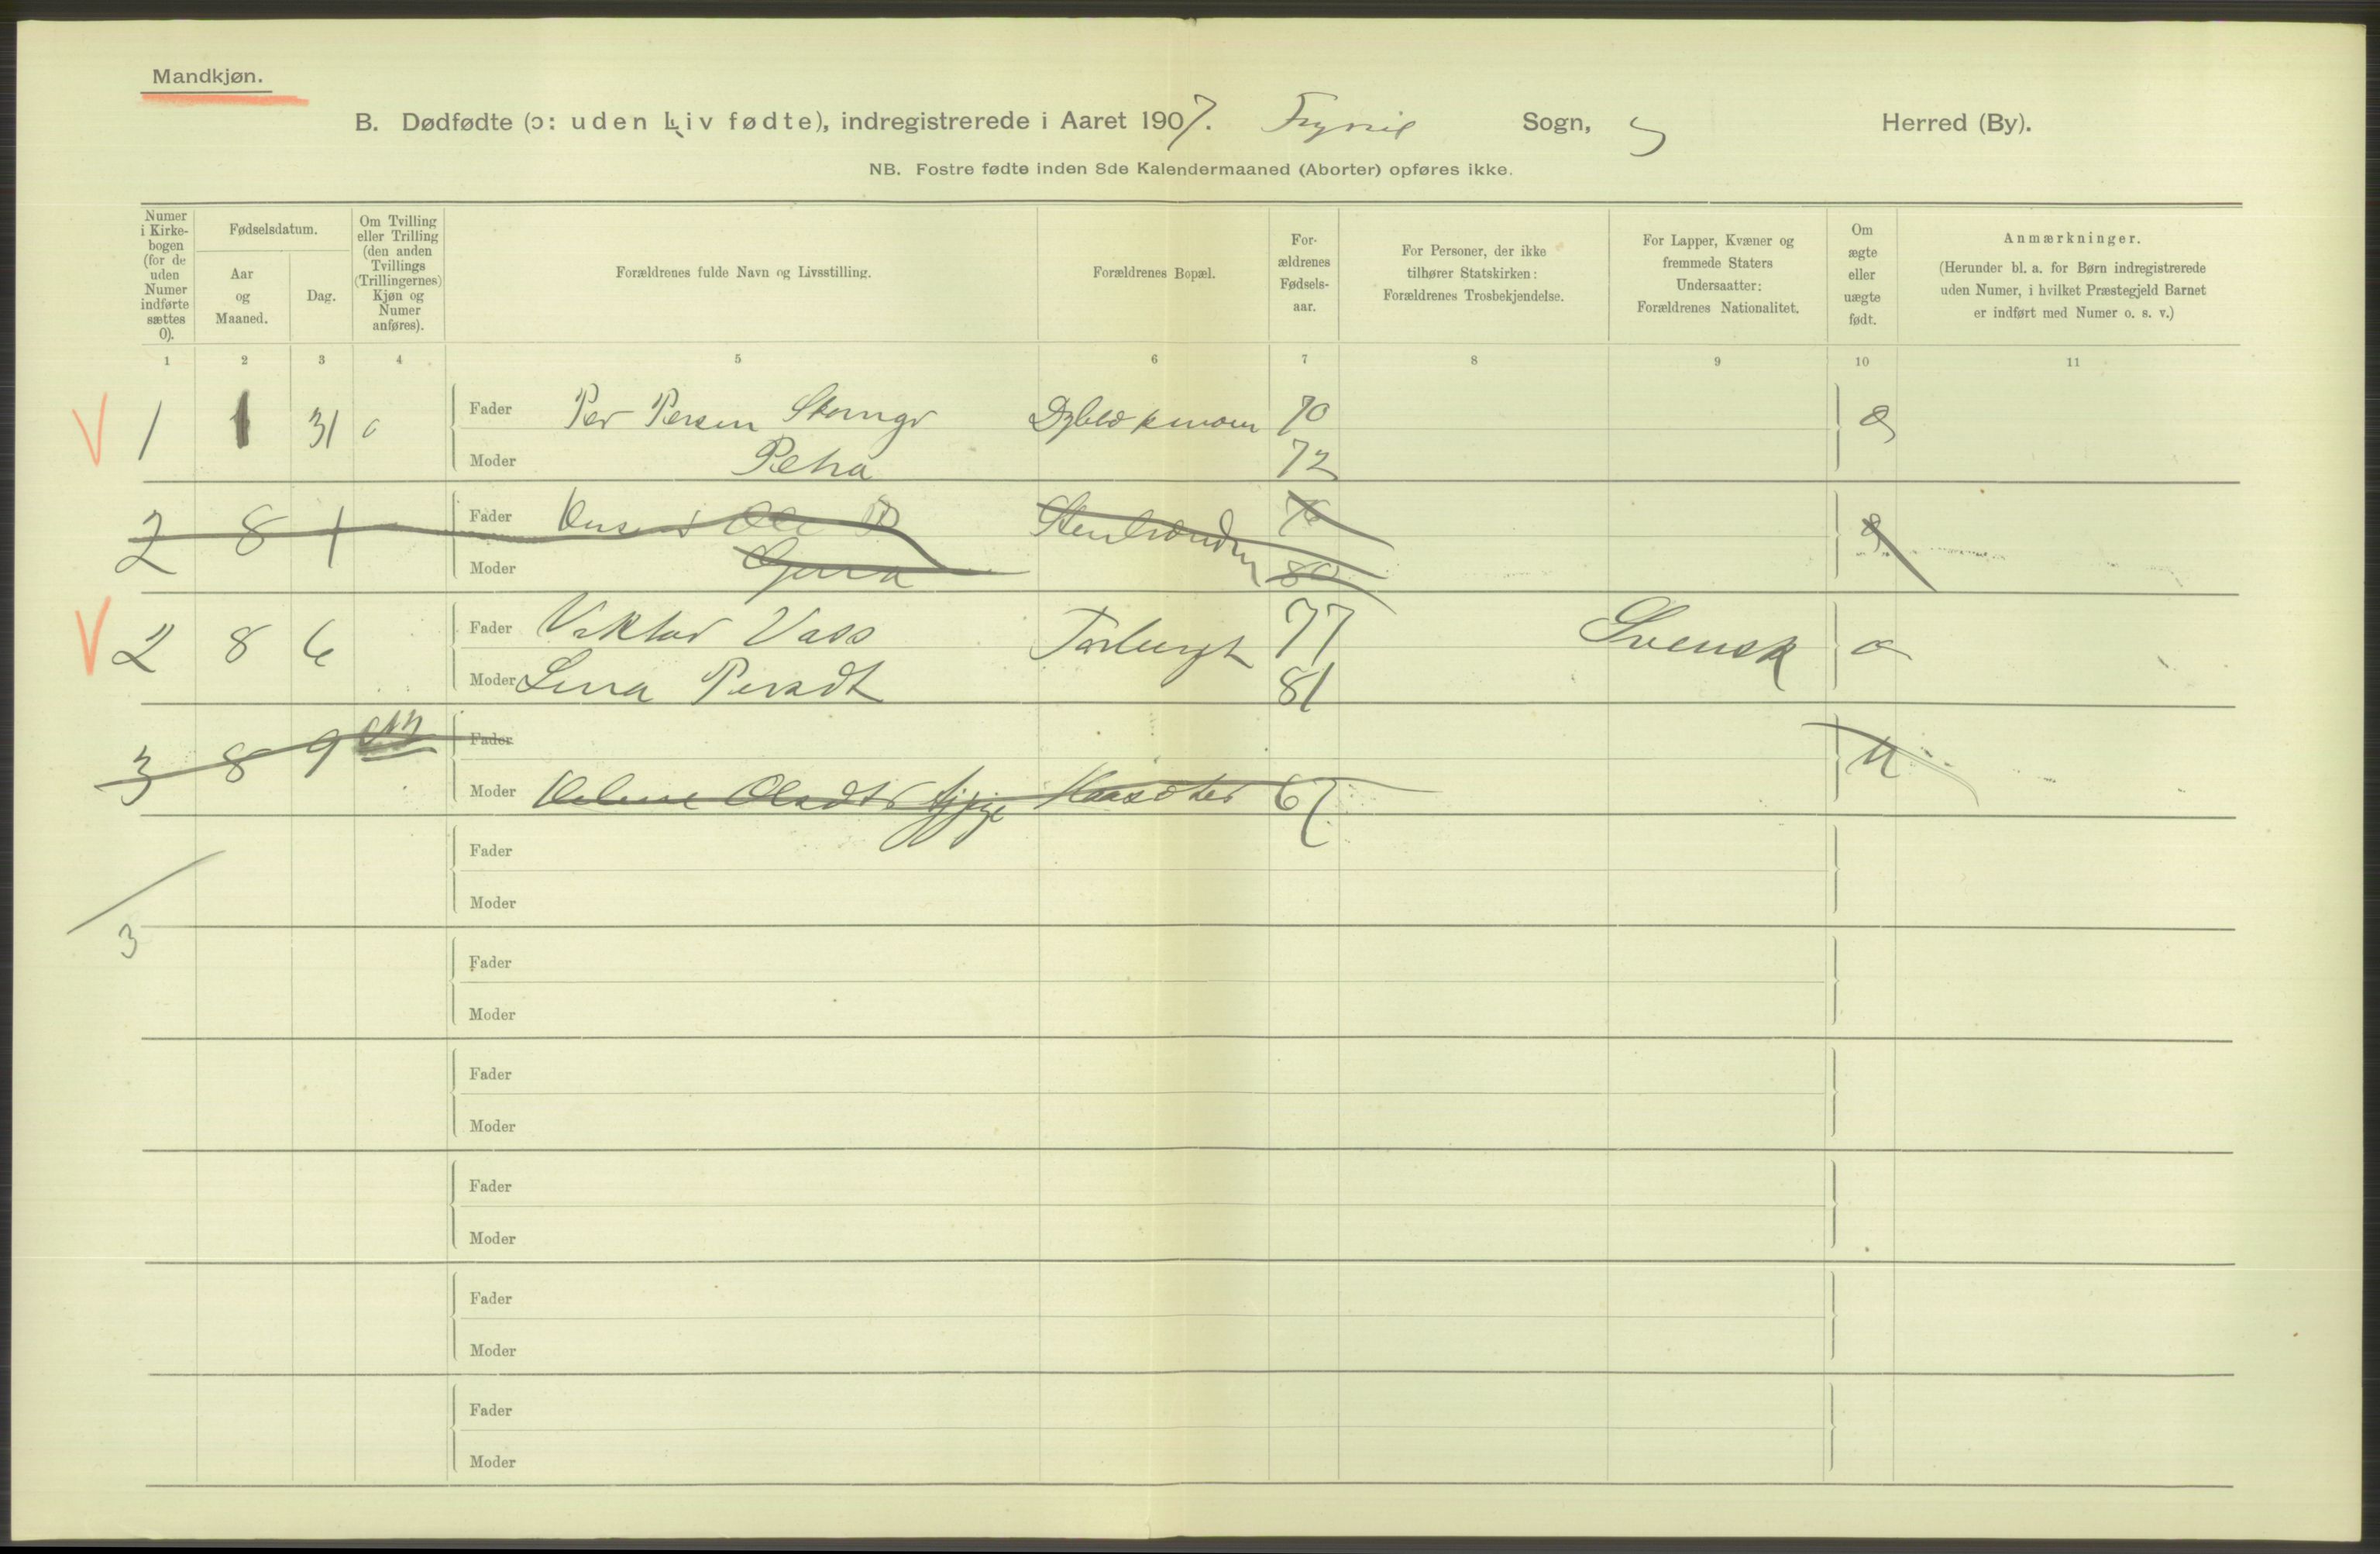 Mandkjøn.
B. Dødfødte (ɔ: uden Liv fødte), indregistrerede i Aaret 1907. Trysil Sogn, Herred (By).
NB. Fostre fødte inden 8de Kalendermaaned (Aborter) opføres ikke.
Numer i Kirke-bogen (for de uden Numer indførte sættes 0).
Fødselsdatum.
Aar og Maaned.
Dag.
Om Tvilling eller Trilling (den anden Tvillings (Trillingernes) Kjøn og Numer anføres).
Forældrenes fulde Navn og Livsstilling.
Forældrenes Bopæl.
For-ældrenes Fødsels-aar.
For Personer, der ikke tilhører Statskirken: Forældrenes Trosbekjendelse.
For Lapper, Kvæner og fremmede Staters Undersaatter: Forældrenes Nationalitet.
Om ægte eller uægte født.
Anmærkninger. (Herunder bl. a. for Børn indregistrerede uden Numer, i hvilket Præstegjeld Barnet er indført med Numer o. s. v.)
1 2 3 4 5 6 7 8 9 10 11
1 1 31 Fader Per Persen 70
Moder Petra 72
2 8 1 Fader Ole
Moder 80
2 8 6 Fader Viktor Vass 77 Svensk
Moder Lina Persdt 81
3 8 9 Fader
Moder Helene Olsdtr 67 u
Fader
Moder
3
Fader
Moder
Fader
Moder
Fader
Moder
Fader
Moder
Fader
Moder